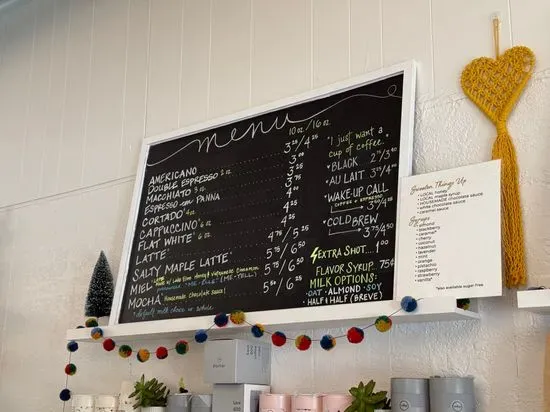 menu
10 oz/16 oz
AMERICANO 3²⁵/4²⁵
DOUBLE ESPRESSO 2 oz 3⁰⁰
MACCHIATO 3 oz 3⁵⁰
ESPRESSO con PANNA 3⁷⁵
CORTADO* 4 oz 4⁰⁰
CAPPUCCINO* 6 oz 4²⁵
FLAT WHITE* 6 oz 4²⁵
LATTE* 4⁷⁵/5²⁵
SALTY MAPLE LATTE* 5⁷⁵/6⁵⁰
MIEL* Made w/ Lake Time Honey & Vietnamese Cinnamon 5⁷⁵/6⁵⁰
pronounced "ME·ELLE" (ME·YELL)
MOCHA* Homemade Chocolate Sauce! 5⁷⁵/6⁵⁰
*default milk choice is Whole
"I just want a
cup of coffee."
·BLACK 2⁷⁵/3⁴⁰
·AU LAIT 3⁴⁵/3⁹⁵
·WAKE-UP CALL
3⁹⁵/4⁵⁰
·COLD BREW
3⁷⁵/4⁵⁰
EXTRA SHOT....1⁰⁰
FLAVOR SYRUP.. 75¢
MILK OPTIONS:
·OAT ·ALMOND ·SOY
·HALF & HALF (BREVE)
Sweeten Things Up
*LOCAL honey
*LOCAL maple syrup
*HOUSEMADE chocolate sauce
*white chocolate sauce
*caramel sauce
Syrups
*almond
*blackberry
*caramel*
*cherry
*coconut
*hazelnut
*lavender
*mint
*orange
*pistachio
*raspberry
*strawberry
*vanilla*
*also available sugar free